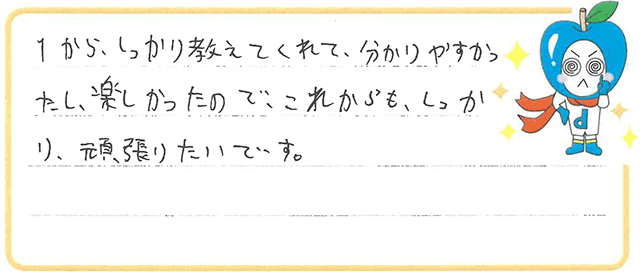 1から、しっかり教えてくれて、分かりやすかっ
たし、楽しかったので、これからも、しっか
り、頑張りたいです。
d